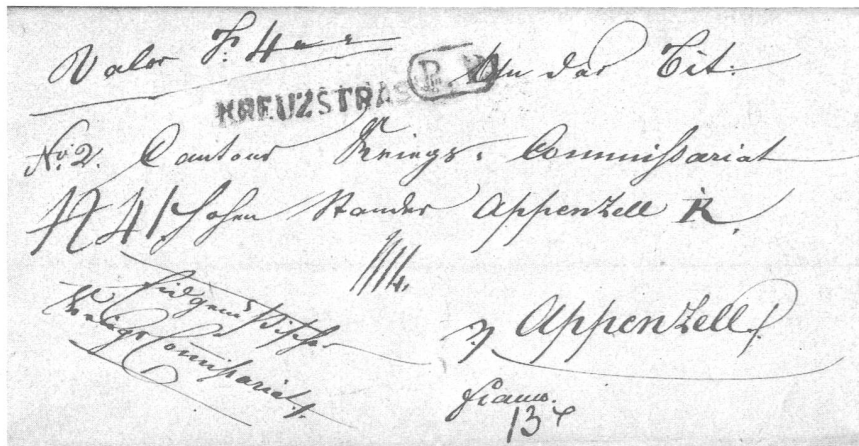 Valor Fr. 4 An das Tit:
KREUZSTRAS P.P.
No. 2. Cantons Kriegs-Commissariat
41 Hohen Standes Appenzell R.
Eidgenössisches
Kriegs Commissariat.
Appenzell.
franco.
13